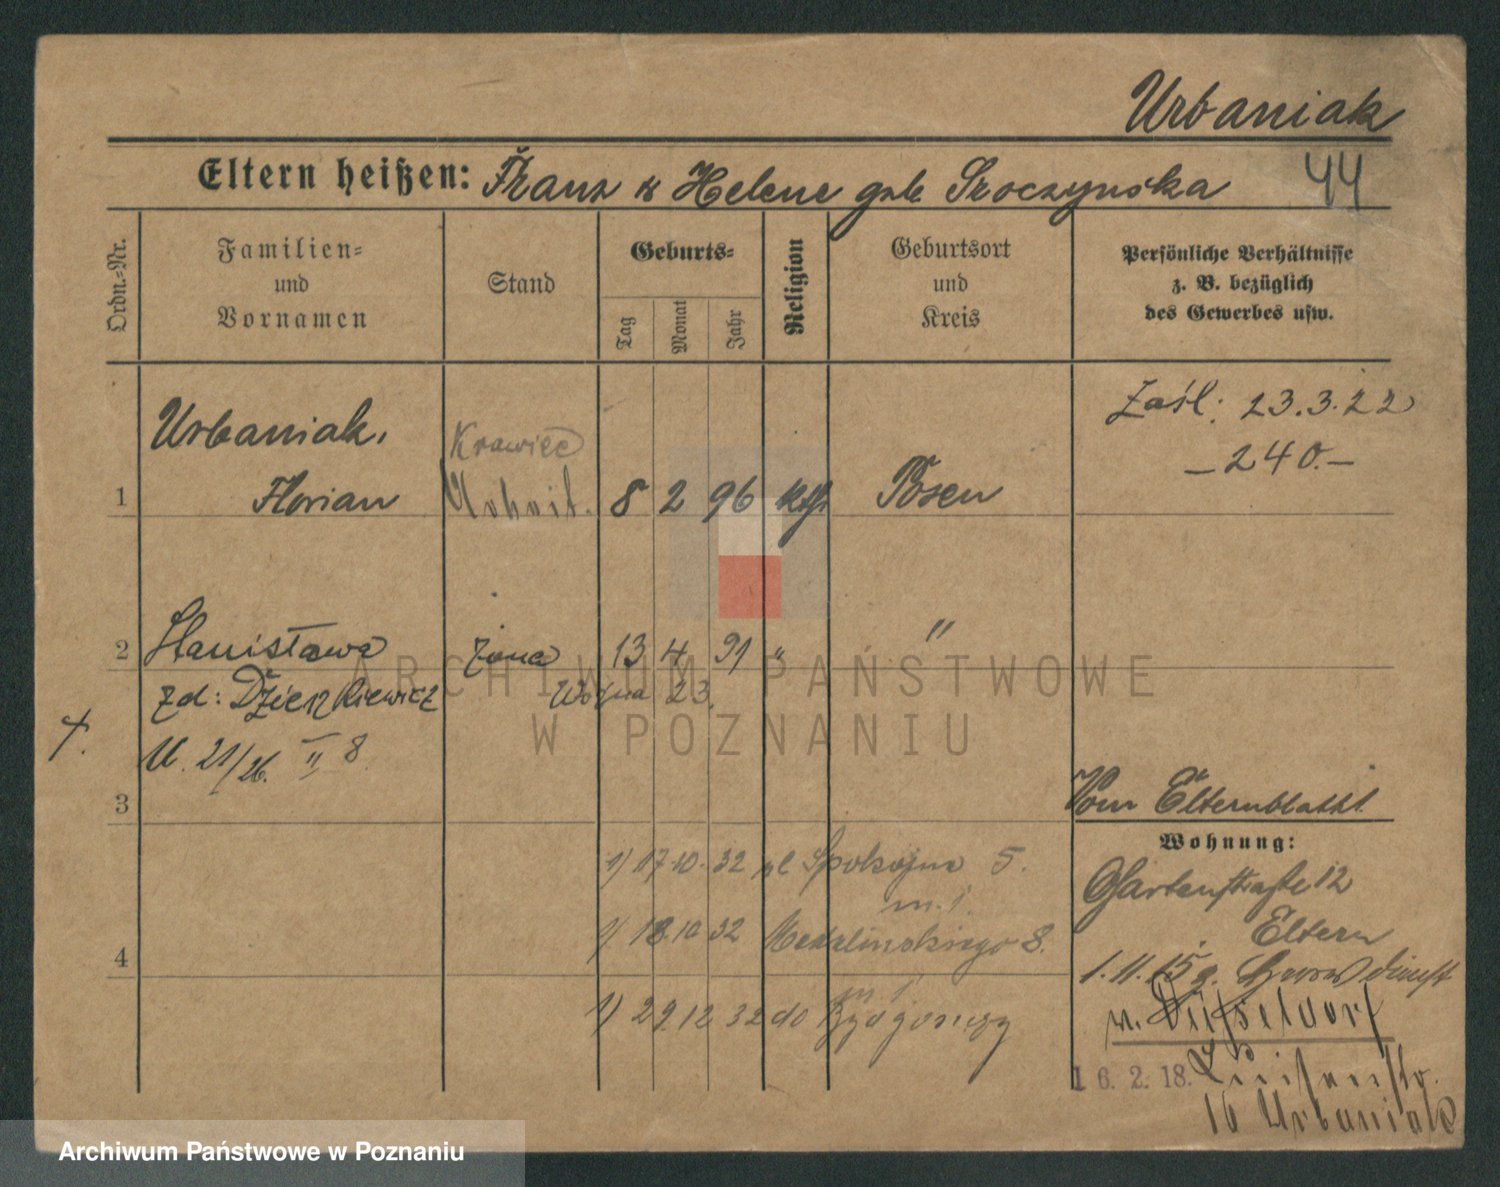 Urbaniak
Eltern heißen: Franz u Helene geb Sroczynska
44
Ordn.-Nr.
Familien-
und
Vornamen
Stand
Geburts-
Tag
Monat
Jahr
Religion
Geburtsort
und
Kreis
Persönliche Verhältnisse
z. B. bezüglich
des Gewerbes usw.
Zaśl: 23.3.22
— 240.—
Urbaniak,
Krawiec
1 Florian Arbeit. 8 2 96 kth Posen
2 Stanisława żona 13 4 91 " "
zd: Dzierzkiewicz Wojna 23.
U. 21/26. II 8
3
Vom Elternblatt
Wohnung:
1) 17.10. 32 pl Spokojna 5.
m. 1.
Gartenstraße 12
Eltern
4
1) 18.10 32 Madalinskiego 8.
m 1
1.11.15 z. Heeresdienst
1) 29.12 32 do Bydgoszczy
n. Düsseldorf
16. 2. 18. Luisenstr.
16 Urbaniak
ARCHIWUM PAŃSTWOWE
W POZNANIU
Archiwum Państwowe w Poznaniu